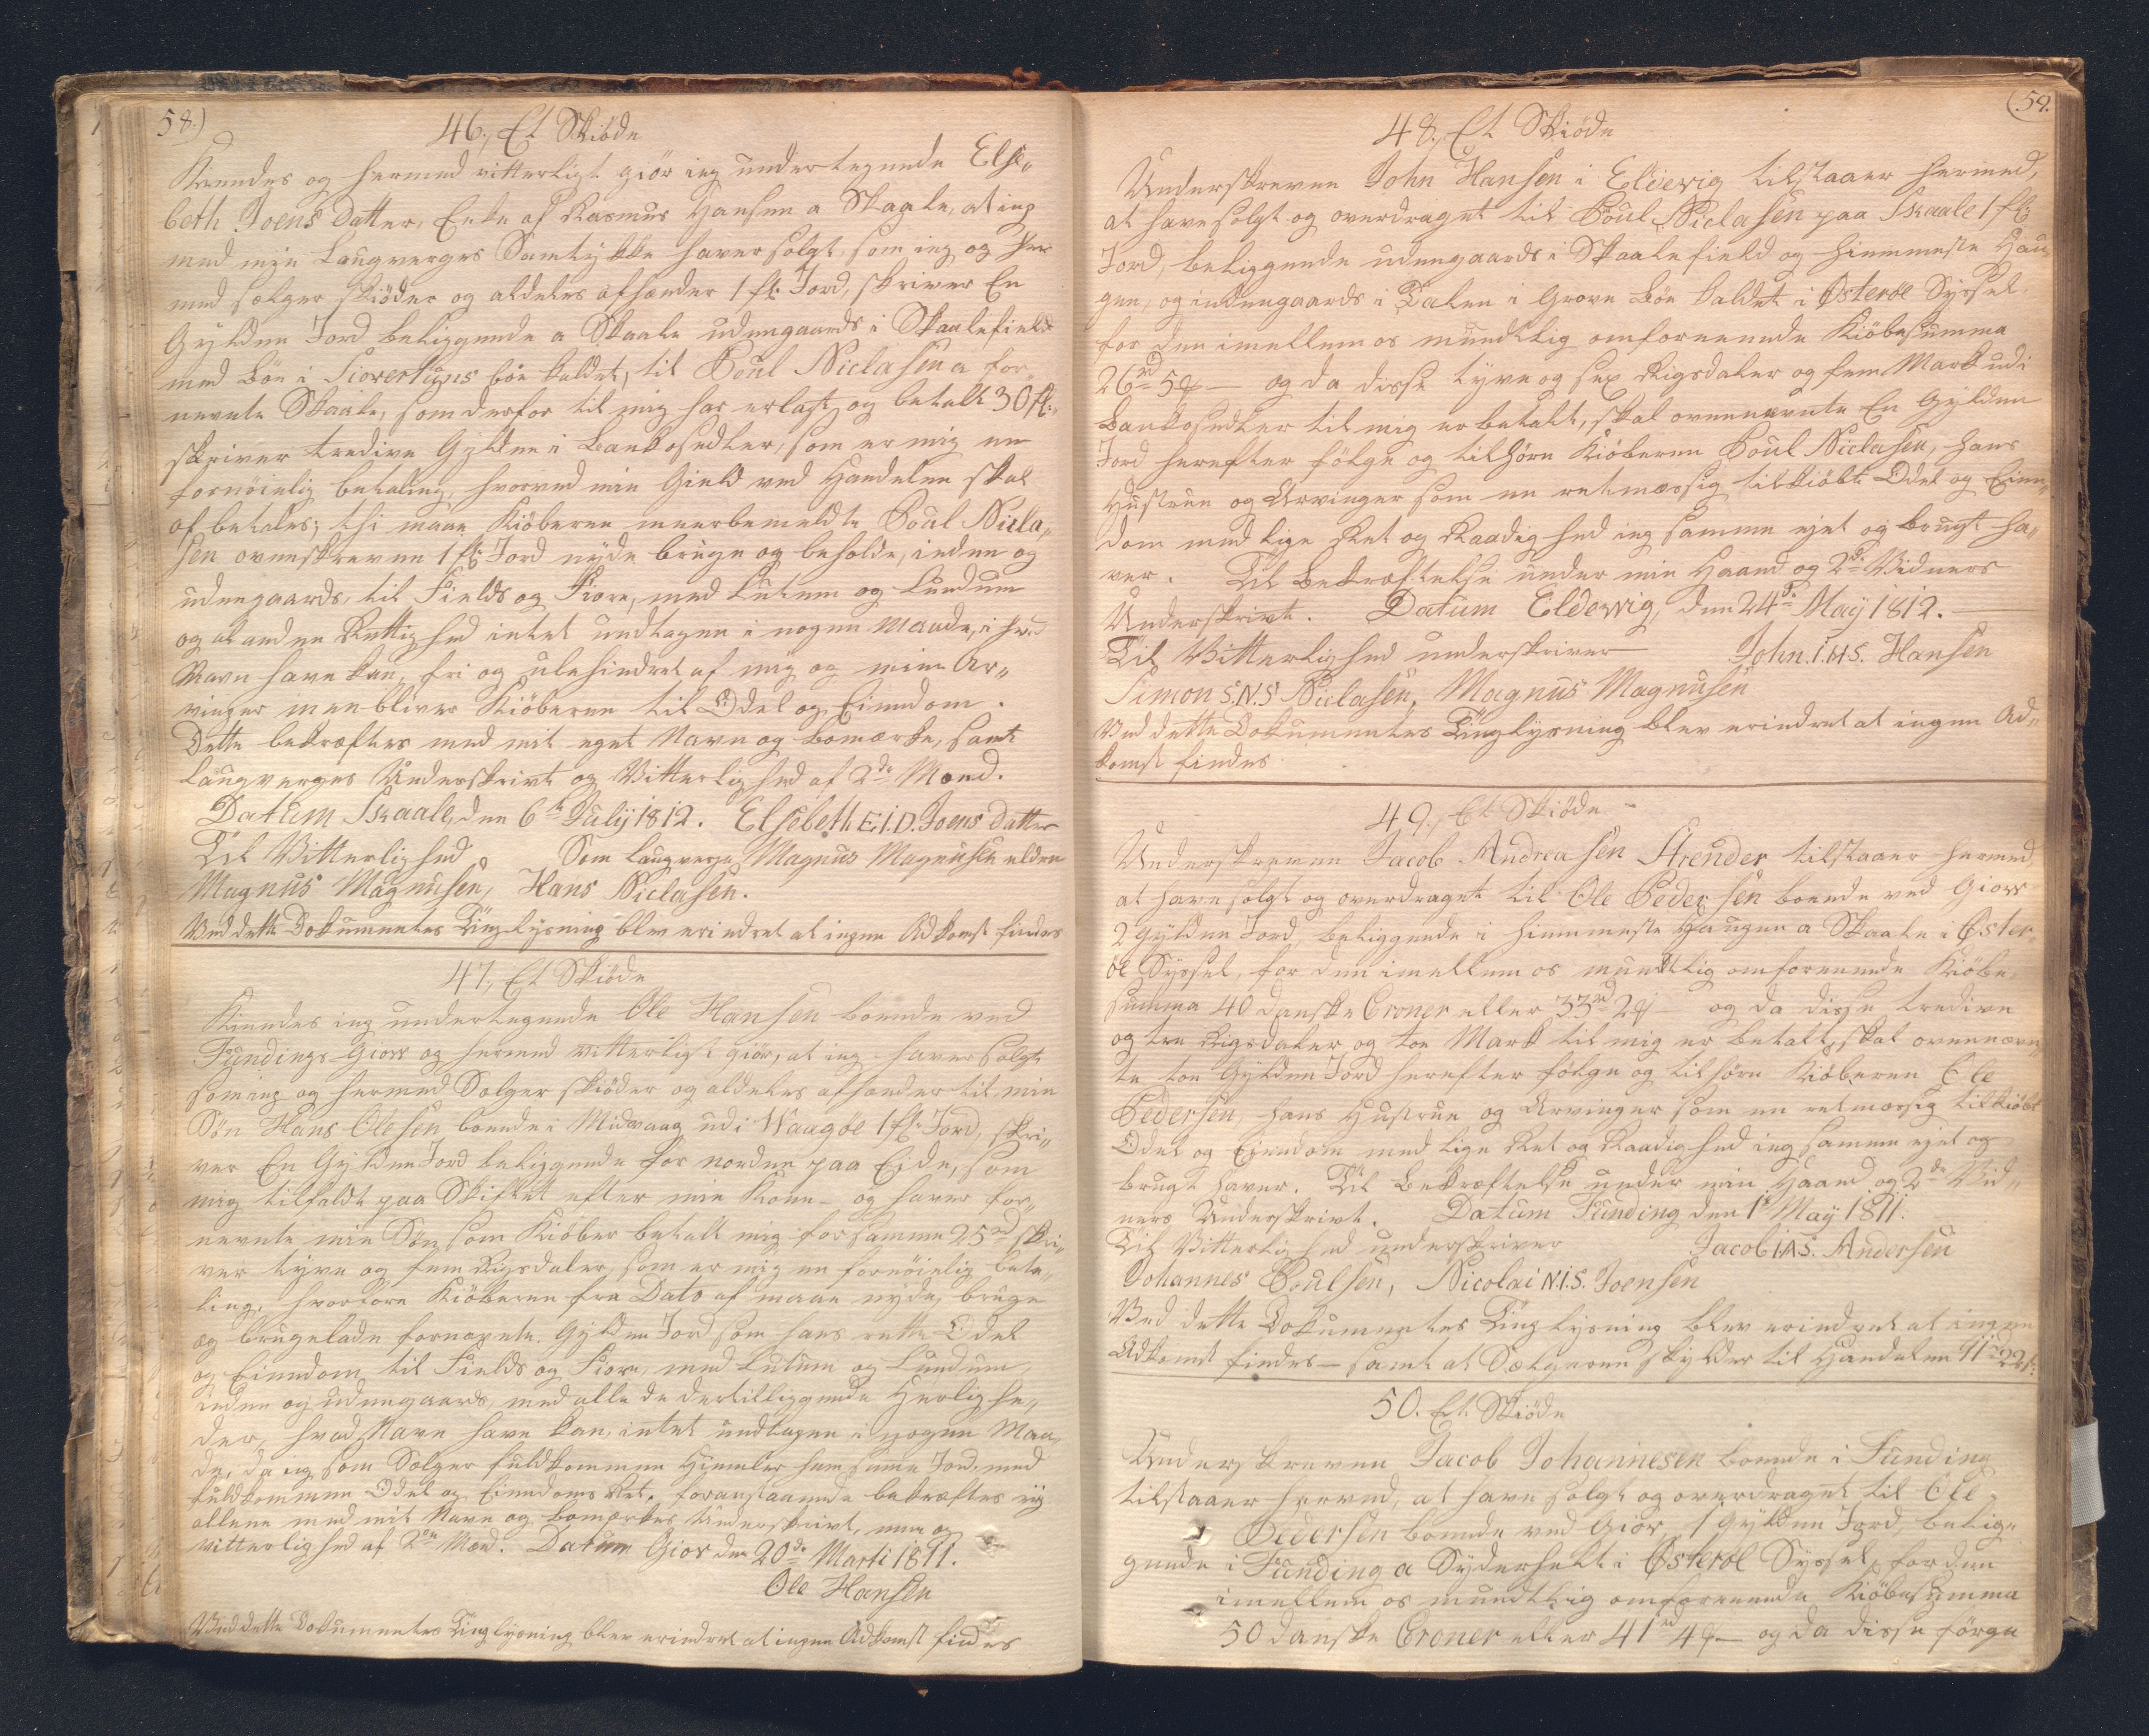 58.)
46., Et Skiöde
Kiendes og hermed vitterligt giör ieg undertegnede Else„
beth Joens Datter, Enke af Rasmus Hansen a Skaale, at ieg
med min Laugverges Samtykke haver solgt, som ieg og her
med sælger skiöder og aldeles afhænder 1 fl: Jord, skriver En
Gylden Jord beliggende a Skaale udengaards i Skaalefield
med Böe i Siovertuns böe kaldet, til Poul Niclasen a for
nevnte Skaale, som derfor til mig har erlagt og betalt 30 fl:
skriver tredive Gylden i Bankosedler, som er mig en
fornöielig betaling, hvorved min Gield ved Handelen skal
af betales; thi maae Kiöberen meerbemeldte Poul Nicla„
sen ovenskrevne 1 fl: Jord nyde bruge og beholde, inden og
udengaards, til Fields og Fiore, med Lutum og Lundum
og al anden Rettighed intet undtagen i nogen Maade, i hvad
Navn have kan, fri og ulehindret af mig og mine Ar„
vinger men bliver Kiöberen til Odel og Eiendom.
Dette bekræftes med mit eget Navn og Bomærke, samt
Laugverges Underskrivt og Vitterlighed af 2de Mænd.
Datum Skaale, den 6te July 1812. Elsebeth E.I.D. Joens Datter
Til Vitterlighed Som Laugverge Magnus Magnusen eldre
Magnus Magnusen, Hans Niclasen.
Ved dette Dokumentes Tinglysning blev erindret at ingen Adkomst findes
47., Et Skiöde
Kiendes ieg undertegnede Ole Hansen boende ved
Fundings Giow og hermed vitterligst giör, at ieg haver solgt
som ieg og hermed Sælger skiöder og aldeles afhænder til min
Sön Hans Olesen boende i Midvaag udi Waagöe 1 fl: Jord, skri„
ver En Gylden Jord beliggende för norden paa Ejde, som
mig tilfaldt paa Skiftet efter min Kone - og haver for„
nevnte min Sön som Kiöber betalt mig for samme 25 rd skri„
ver tyve og fem Rigsdaler, som er mig en fornöielig beta„
ling, hvorfore Kiöberen fra Dato af maae nyde, bruge
og brugelade fornevnte Gylden Jord som hans rette Odel
og Eiendom til Fields og Fiore, med Lutum og Lundum,
inden og udengaards, med alle de dertilliggende Herlighe„
der, hvad Navn have kan, intet undtagen i nogen Maa„
de, da ieg som Sælger fuldkommen Hiemler ham samme Jord, med
fuldkommen Odel og Eiendoms Ret. foranstaaende bekræftes ey
allene med mit Navn og bomærkes Underskrivt, men og
vitterlighed af 2de Mænd. Datum Giov den 20de Marti 1811.
Ole Hansen
Ved dette Dokumentes Tinglysning blev erindret at ingen Adkomst findes
(59.
48., Et Skiöde
Underskreven John Hansen i Eldevig tilstaaer hermed,
at have solgt og overdraget til Poul Niclasen paa Skaale 1 fl:
Jord, beliggende udengaards i Skaalefield og Hiemmeste Hau„
gen, og indengaards i Dalen i Grove Böe kaldet i Österöe Syssel,
for den imellem os mundtlig omforenende Kiöbesumma
26 rd 5 ℳ — og da disse tyve og sex Rigsdaler og fem Mark udi
Bankosedler til mig er betalt, skal ovennevnte En Gylden
Jord herefter fölge og tilhöre Kiöberen Poul Niclasen, hans
Hustrue og Arvinger som en retmæssig tilkiöbt Odel og Eien„
dom med lige Ret og Raadighed ieg samme ejet og brugt ha„
ver. Til Bekræftelse under min Haand og 2de Vidners
Underskrivt. Datum Eldewig, den 24de May 1812.
Til Vitterlighed underskriver John. I.H.S. Hansen
Simon S.N.S Niclasen, Magnus Magnusen
Ved dette Dokumentes Tinglysning blev erindret at ingen Ad„
komst findes
49., Et Skiöde
Underskreven Jacob Andreasen Strender tilstaaer hermed,
at have solgt og overdraget til Ole Pedersen boende ved Giow
2 Gylden Jord, beliggende i Himmeste Haugen a Skaale i Öster„
öe Syssel, for den imellem os mundtlig omforenende Kiöbe
summa 40 danske Croner eller 33 rd 2 ℳ — og da disse tredive
og tre Rigsdaler og toe Mark til mig er betalt, skal ovennævn„
te toe Gylden Jord herefter fölge og tilhöre Kiöberen Ole
Pedersen, hans Hustrue og Arvinger som en retmæssig tilkiöbt
Odel og Eiendom med lige Ret og Raadighed ieg samme ejet og
brugt haver. Til Bekræftelse under min Haand og 2de Vid„
ners Underskrivt. Datum Funding den 1te May 1811.
Til Vitterlighed underskriver Jacob I.A.S. Andersen
Johannes Poulsen, Nicolai N.I.S. Joensen
Ved dette Dokumentes Tinglysning blev erindret at ingen
Adkomst findes — samt at Sælgeren skylder til Handelen
50. Et Skiöde
Underskreven Jacob Johannesen boende i Funding
tilstaaer herved, at have solgt og overdraget til Ole
Pedersen boende ved Giov, 1 Gylden Jord belig„
gende i Funding a Syderhelt i Österöe Syssel, for den
imellem os mundtlig omforenende Kiöbesumma
50 danske Croner eller 41 rd 4 ℳ — og da disse förge